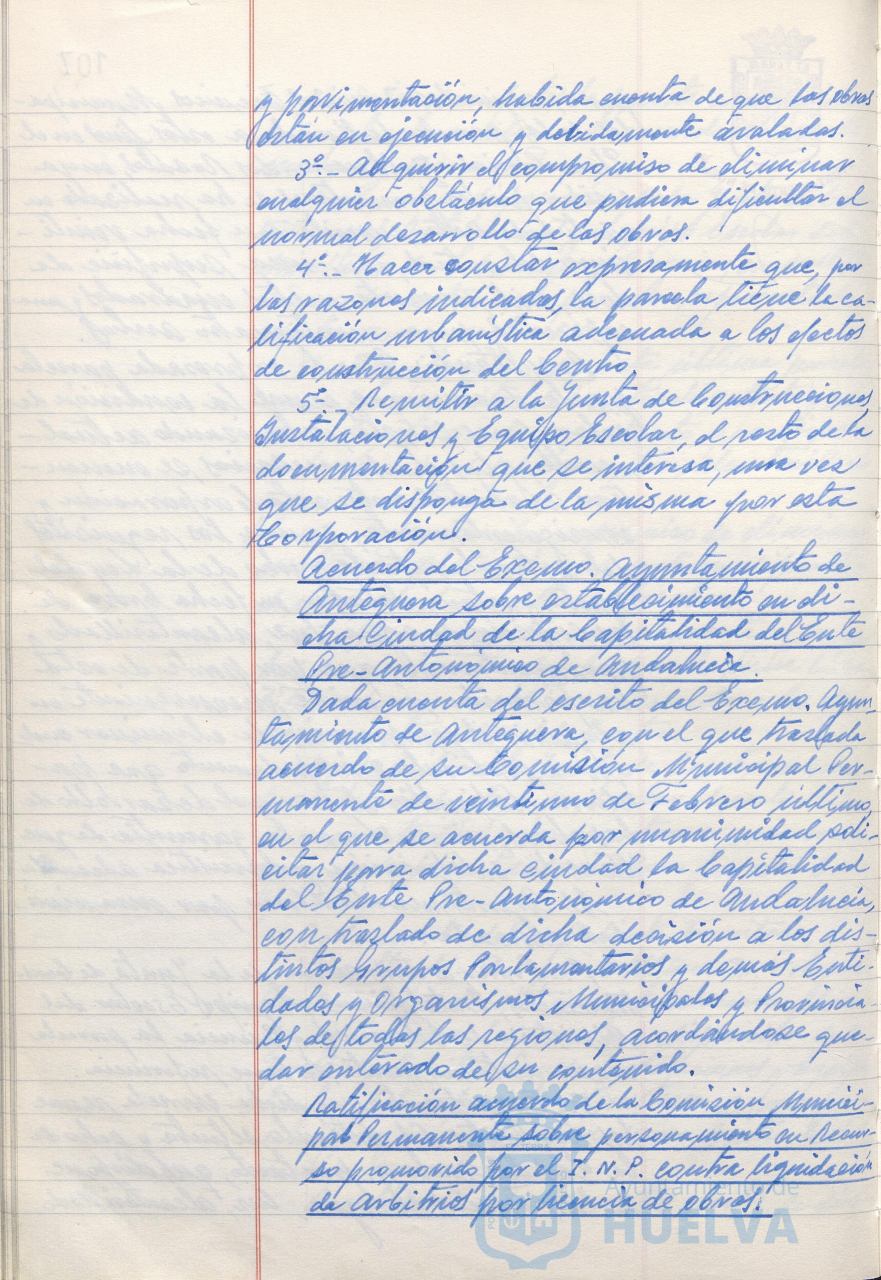 y pavimentación, habida cuenta de que las obras
están en ejecución y debidamente avaladas.
3º.- Adquirir el compromiso de eliminar
cualquier obstáculo que pudiera dificultar el
normal desarrollo de las obras.
4º.- Hacer constar expresamente que, por
las razones indicadas, la parcela tiene la ca-
lificación urbanística adecuada a los efectos
de construcción del Centro.
5º.- Remitir a la Junta de Construcciones,
Instalaciones y Equipo Escolar, el resto de la
documentación que se interesa, una vez
que se disponga de la misma por esta
Corporación.
Acuerdo del Excmo. Ayuntamiento de
Antequera sobre establecimiento en di-
cha Ciudad de la Capitalidad del Ente
Pre-Autonómico de Andalucía.
Dada cuenta del escrito del Excmo. Ayun-
tamiento de Antequera, con el que traslada
acuerdo de su Comisión Municipal Per-
manente de veintiuno de Febrero último,
en el que se acuerda por unanimidad soli-
citar para dicha Ciudad la Capitalidad
del Ente Pre-Autonómico de Andalucía,
con traslado de dicha decisión a los dis-
tintos Grupos Parlamentarios y demás Enti-
dades y Organismos Municipales y Provincia-
les de todas las regiones, acordándose que-
dar enterado de su contenido.
Ratificación acuerdo de la Comisión Munici-
pal Permanente sobre personamiento en Recur-
so promovido por el I.N.P. contra liquidación
de Arbitrios por licencia de obras.
Ayuntamiento de
HUELVA